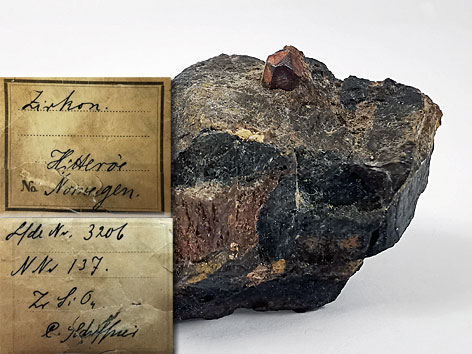 Zirkon.
Hitteröe
No Norwegen.
Lfde Nr. 3206
N Nr 137.
Zr Si O4
C.